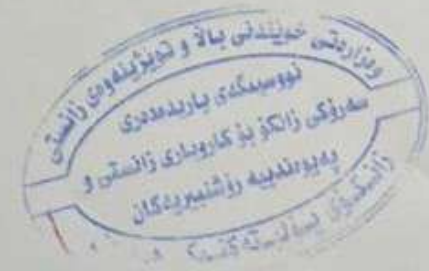 وەزارەتی خوێندنی باڵا و توێژینەوەی زانستی
نووسینگەی یاریدەدەری
سەرۆکی زانکۆ بۆ کاروباری زانستی و
پەیوەندییە رۆشنبیریەکان